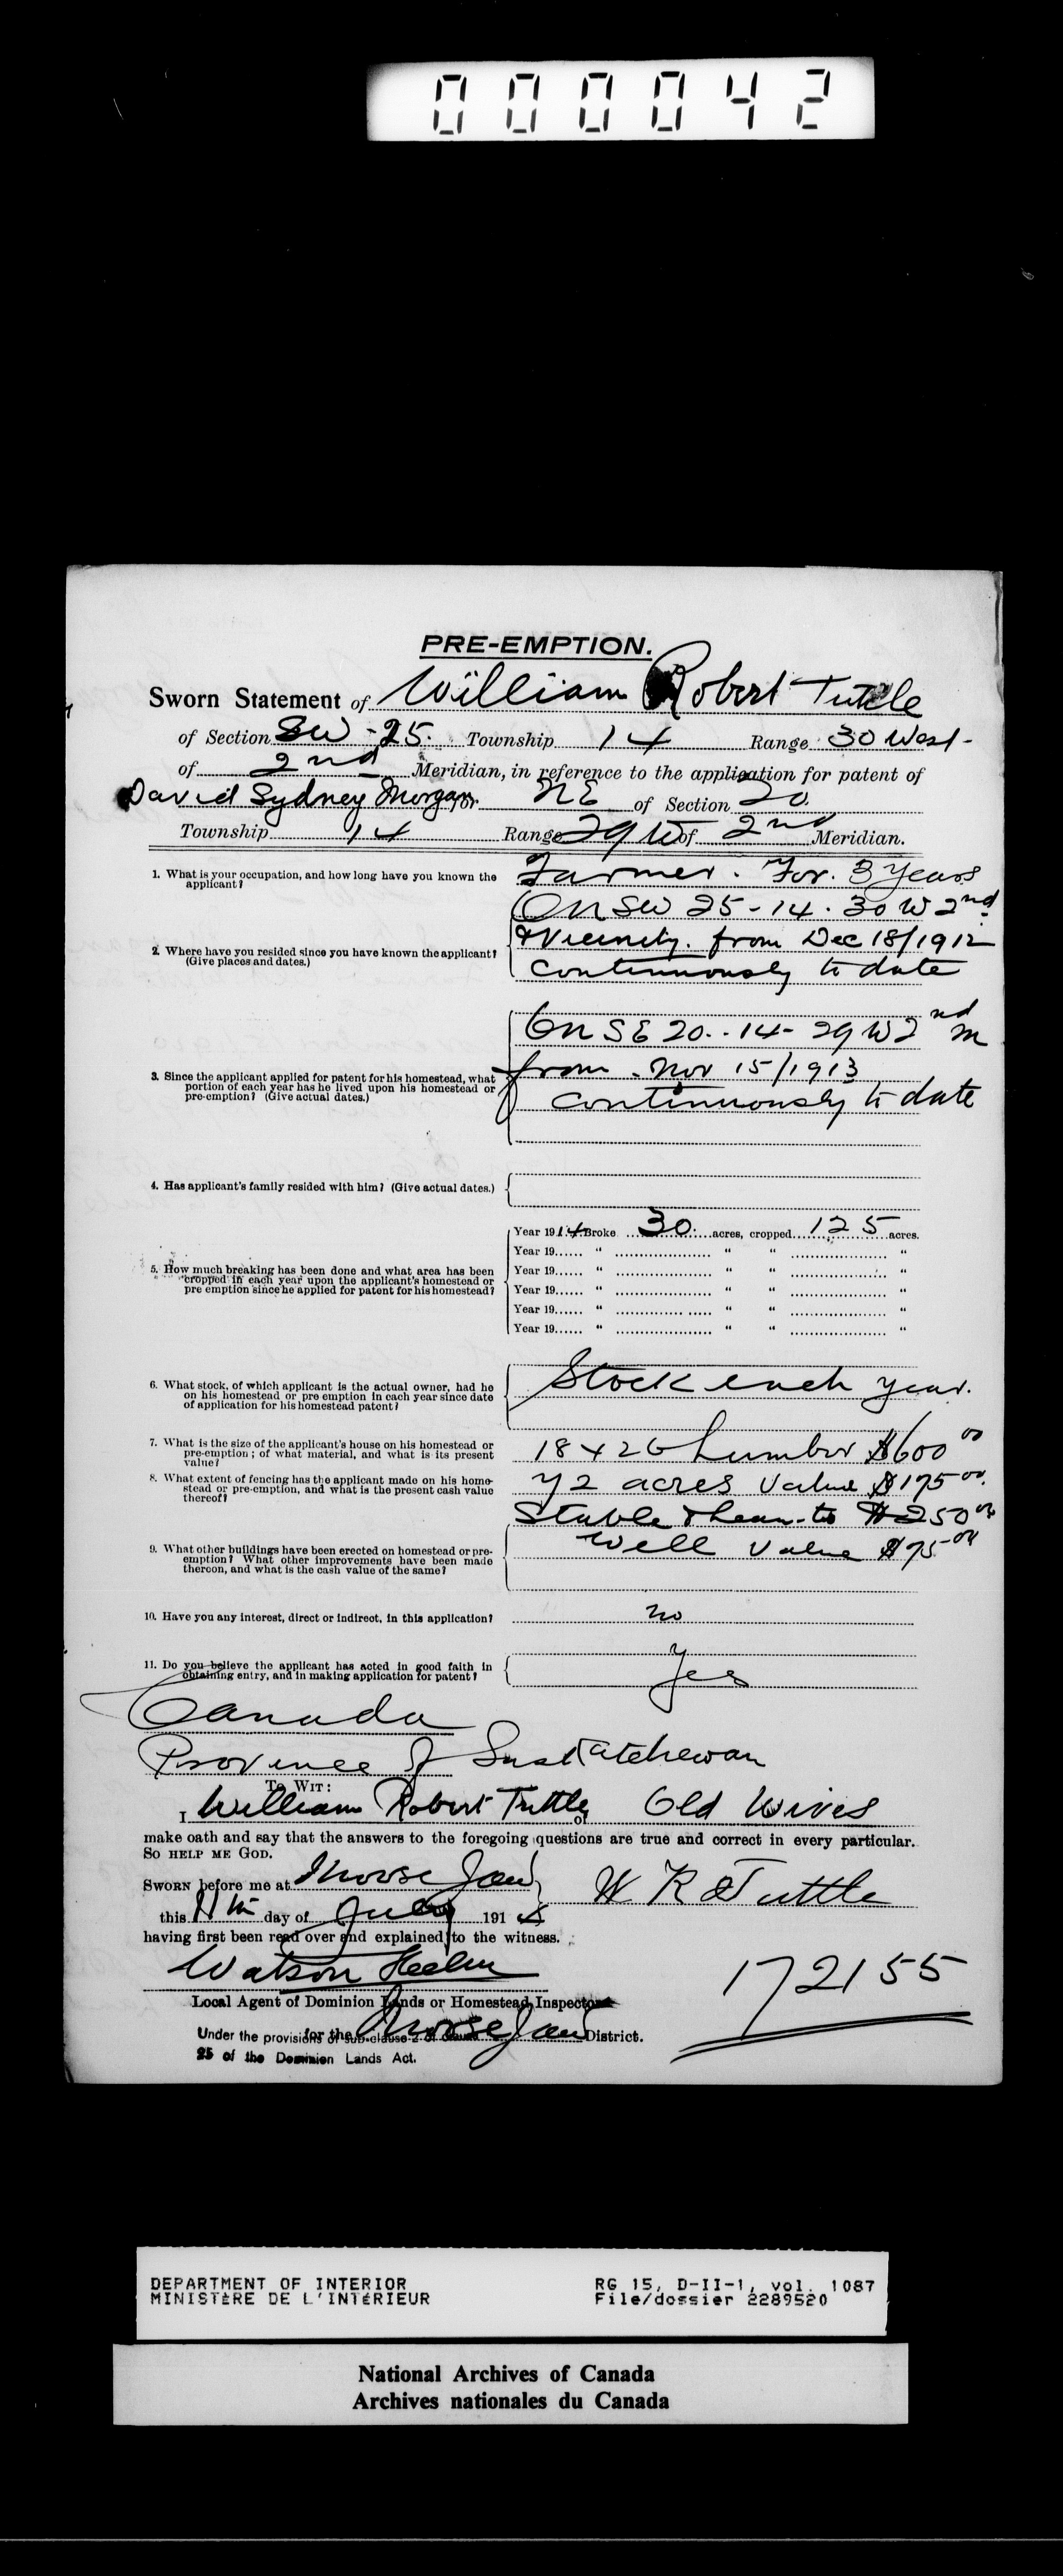 000042
PRE-EMPTION.
Sworn Statement of William Robert Tuttle
of Section SW - 25. Township 14 Range 30 West -
of 2nd Meridian, in reference to the application for patent of
David Sydney Morgan for NE of Section 20
Township 14 Range 29 W of 2nd Meridian.
1. What is your occupation, and how long have you known the applicant?
Farmer. For. 3 years
2. Where have you resided since you have known the applicant? (Give places and dates.)
On SW 25-14-30 W 2nd
& Vicinity. from Dec 18/1912
continuously to date
3. Since the applicant applied for patent for his homestead, what portion of each year has he lived upon his homestead or pre-emption? (Give actual dates.)
On SE 20-14-29 W 2nd M
from Nov 15/1913
continuously to date
4. Has applicant's family resided with him? (Give actual dates.)
5. How much breaking has been done and what area has been cropped in each year upon the applicant's homestead or pre emption since he applied for patent for his homestead?
Year 1914 Broke 30 acres, cropped 125 acres.
Year 19...... " " " "
Year 19...... " " " "
Year 19...... " " " "
Year 19...... " " " "
Year 19...... " " " "
6. What stock, of which applicant is the actual owner, had he on his homestead or pre emption in each year since date of application for his homestead patent?
Stock each year.
7. What is the size of the applicant's house on his homestead or pre-emption; of what material, and what is its present value?
18 x 26 Lumber $600 00
8. What extent of fencing has the applicant made on his homestead or pre-emption, and what is the present cash value thereof?
72 acres Value $175 00
9. What other buildings have been erected on homestead or pre-emption? What other improvements have been made thereon, and what is the cash value of the same?
Stable & lean-to $250 00
Well Value $75 00
10. Have you any interest, direct or indirect, in this application?
no
11. Do you believe the applicant has acted in good faith in obtaining entry, and in making application for patent?
Yes
Canada
Province of Saskatchewan
TO WIT:
I William Robert Tuttle of Old Wives
make oath and say that the answers to the foregoing questions are true and correct in every particular.
SO HELP ME GOD.
SWORN before me at Moose Jaw
W R Tuttle
this 11th day of July 191
having first been read over and explained to the witness.
Watson
172155
Local Agent of Dominion Lands or Homestead Inspector
for the Moose Jaw District.
Under the provisions of sub-clause 2 of clause
25 of the Dominion Lands Act.
DEPARTMENT OF INTERIOR
MINISTÈRE DE L'INTÉRIEUR
RG 15, D-II-1, vol. 1087
File/dossier 2289520
National Archives of Canada
Archives nationales du Canada